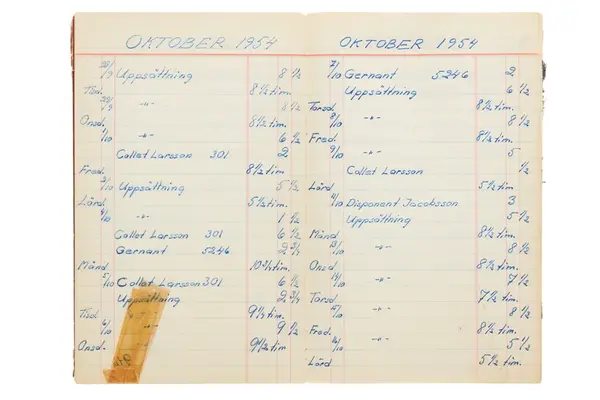 OKTOBER 1954
Uppsättning 8 ½
Tisd. 8½ tim.
-"- 8 ½
Onsd. 8½ tim.
1/10 -"- 6 ½
Collet Larsson 301 2
Fred. 8½ tim
Uppsättning 5 ½
Lörd. 5½ tim.
4/10 -"- 1 ½
Collet Larsson 301 6 ½
Gernant 5246 2 ¾
Månd. tim.
5/10 Collet Larsson 301 6 ½
Uppsättning 2 ¾
Tisd. tim.
6/10 -"- 9 ½
Onsd. tim.
OKTOBER 1954
7/10 Gernant 5246 2
Uppsättning 6 ½
Torsd. 8½ tim.
8/10 -"- 8 ½
Fred. 8½ tim.
9/10 -"- 5
Collet Larsson ½
Lörd 5½ tim
Disponent Jacobsson 3
Uppsättning 5 ½
Månd. 8½ tim.
13/10 -"- 8 ½
Onsd. 8½ tim.
14/10 -"- 7 ½
Torsd. 7½ tim.
-"- 8 ½
Fred. 8½ tim.
-"- 5 ½
Lörd. 5½ tim.